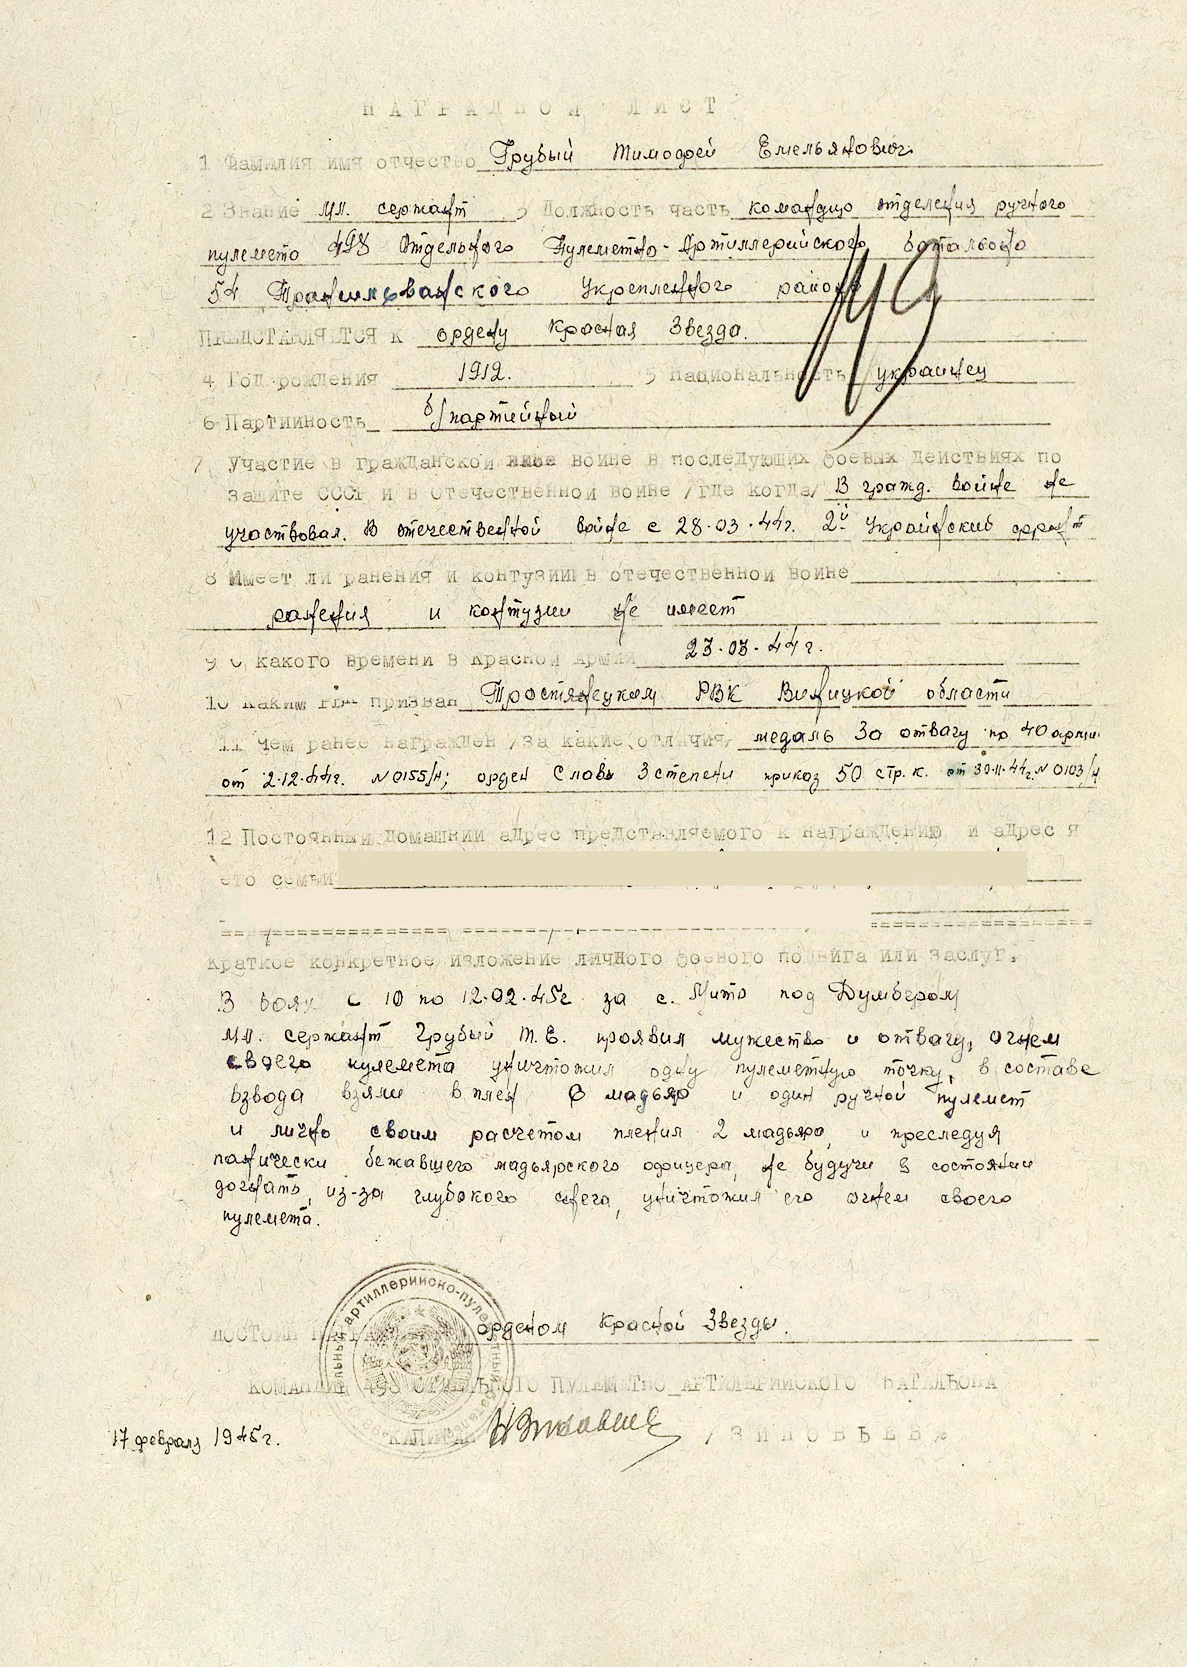 НАГРАДНОЙ ЛИСТ
1 Фамилия имя отчество Грубый Тимофей Емельянович
2 Звание мл. сержант 3 Должность часть командир отделения ручного
пулемета 498 Отдельного Пулеметно-Артиллерийского батальона
54 Укрепленного района
ПРЕДСТАВЛЯЕТСЯ К ордену Красная Звезда.
4 Год рождения 1912. 5 Национальность украинец
6 Партийность б/партийный
7 Участие в гражданской войне в последующих боевых действиях по
защите СССР и в отечественной войне /где когда/ В гражд. войне не
участвовал. В отечественной войне с 28.03.44г. 2й Украинский фронт
8 Имеет ли ранения и контузии в отечественной войне
ранения и контузии не имеет
9 С какого времени в Красной Армии 23.03.44г.
10 Каким РВК призван Тростянецким РВК Виницкой области
11 Чем ранее награжден /за какие отличия/ медаль За отвагу пр 40 армии
от 2.12.44г. N 0155/н; орден Славы 3 степени приказ 50 стр. к. от 30.11.44г. N 0103/н
12 Постоянный домашний адрес представляемого к награждению и адрес я
его семьи
Краткое конкретное изложение личного боевого подвига или заслуг.
В боях с 10 по 12.02.45г за с. под
мл. сержант Грубый Т. Е. проявил мужество и отвагу, огнем
своего пулемета уничтожил одну пулеметную точку, в составе
взвода взяли в плен 8 мадьяр и один ручной пулемет
и лично своим расчетом пленил 2 мадьяра, и преследуя
панически бежавшего мадьярского офицера, не будучи в состоянии
догнать, из-за глубокого снега, уничтожил его огнем своего
пулемета.
ДОСТОИН НАГРАЖ орденом Красной Звезды.
КОМАНДИР 498 ОТДЕЛЬНОГО ПУЛЕМЕТНО_АРТИЛЕРИЙСКОГО БАТАЛЬОНА
17 февраля 1945г. КАПИТАН /ЗИНОВЬЕВ/